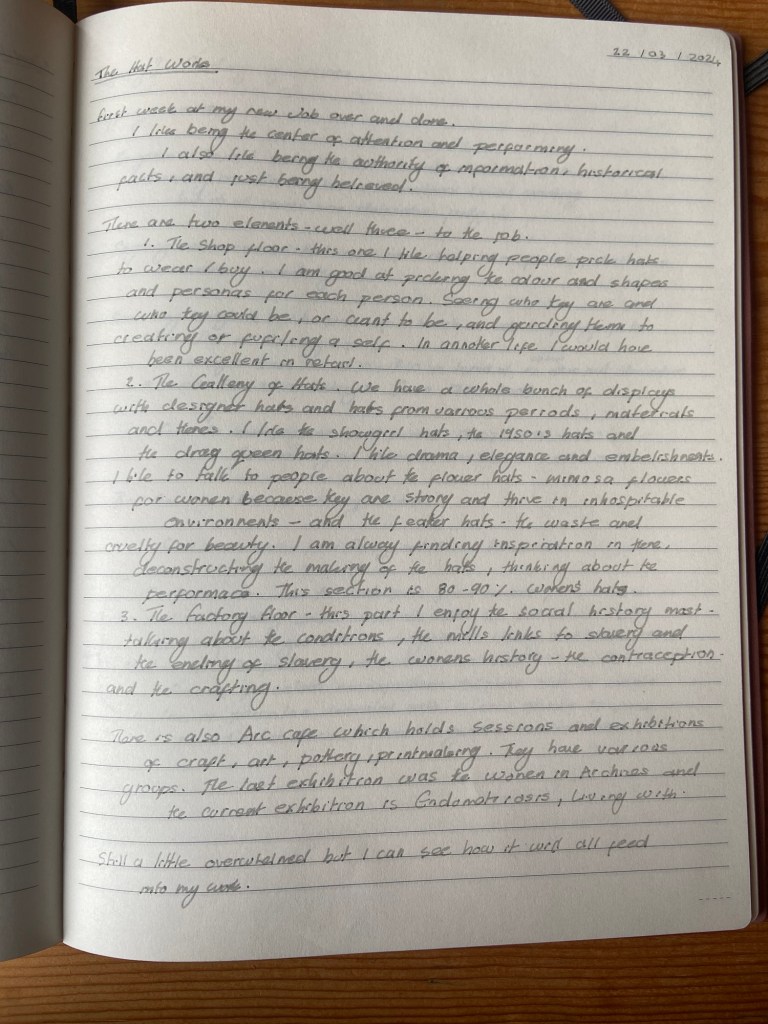 22 / 03 / 2024
The Hat Works
First week at my new job over and done.
I like being the center of attention and performing.
I also like being the authority of information, historical
facts, and just being believed.
There are two elements - well three - to the job.
1. The Shop floor - this one I like helping people pick hats
to wear / buy. I am good at picking the colour and shapes
and personas for each person. Seeing who they are and
who they could be, or want to be, and guiding them to
creating or fulfiling a self. In another life I would have
been excellent in retail.
2. The Gallery of Hats. We have a whole bunch of displays
with designer hats and hats from various periods, materials
and themes. I like the showgirl hats, the 1950's hats and
the drag queen hats. I like drama, elegance and embelishments.
I like to talk to people about the flower hats - mimosa flowers
for women because they are strong and thrive in inhospitable
environments - and the feather hats - the waste and
cruelty for beauty. I am always finding inspiration in here,
deconstructing the making of the hats, thinking about the
performace. This section is 80-90% womens hats.
3. The factory floor - this part I enjoy the social history most -
talking about the conditions, the mills links to slavery and
the ending of slavery, the womens history - the contraception -
and the crafting.
There is also Arc cafe which holds sessions and exhibitions
of craft, art, pottery, printmaking. They have various
groups. The last exhibition was the Women in Archives and
the current exhibition is Endometriosis, Living with.
Still a little overwhelmed but I can see how it will all feed
into my work.